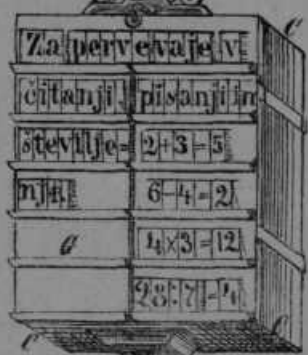 Za perve vaje v
čitanji, pisanji in
številje= 2+3=5
nji. 6-4=2
4×3=12
28:7=4